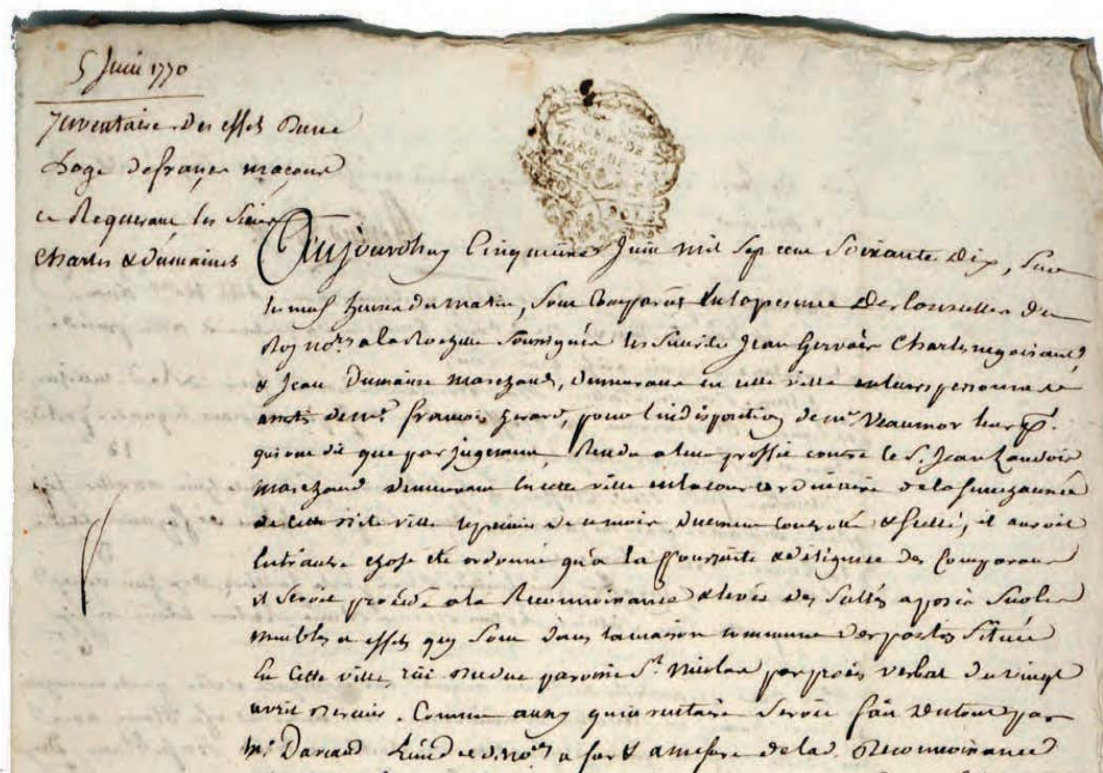 5 Juin 1770
Inventaire des effets d'une
Loge de francs maçons
ce Requerant les Sieurs
Charles & Dumaines
Aujourdhuy Cinquieme Juin mil sept cent Soixante dix, sur
les neuf heures du matin, sont Comparus
Roy no.re a la Rochelle soussignés les sieurs Jean Gervais Charles negociant,
& Jean Dumaine Marchand, demeurans en cette ville en leurs personnes
de m.e françois Gerard, pour l'indisposition de m.e
qui ont dit que par jugement Rendu a leur proffit contre le S. Jean
Marchand demeurant en cette ville en la cour ordinaire de la Senechaussée
de cette dite ville le premier de ce mois duement controllé & scellé, il auroit
Entrautre chose été ordonné qu'a la Poursuite & diligence des Comparans
il seroit procédé a la Reconnoissance & levée des scellés aposés sur les
meubles et effets quy sont dans la maison commune des parties située
En Cette ville, paroisse S.t Nicolas par procès verbal du vingt
avril dernier. Comme aussy qu'inventaire seroit fait du tout par
M.e no.re a fur & a mesure de la d. Reconnoissance